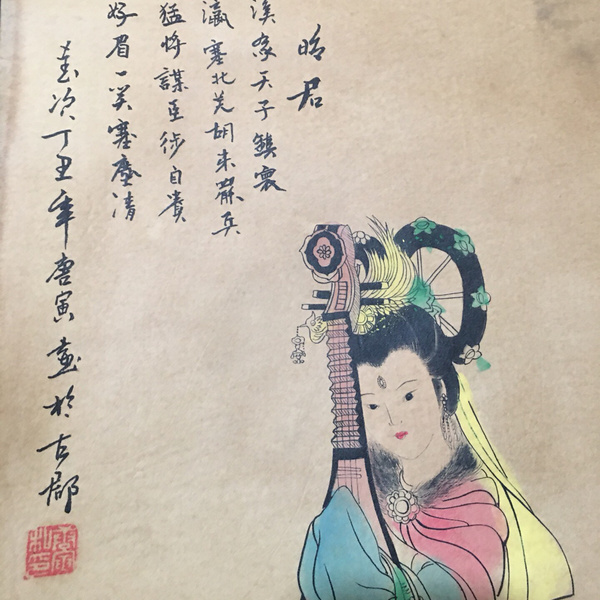 昭君
漢家天子鎮寰
瀛塞北羌胡未罷兵
猛將謀臣徒自貴
眉一笑塞塵清
歲次丁丑年唐寅畫於古郡